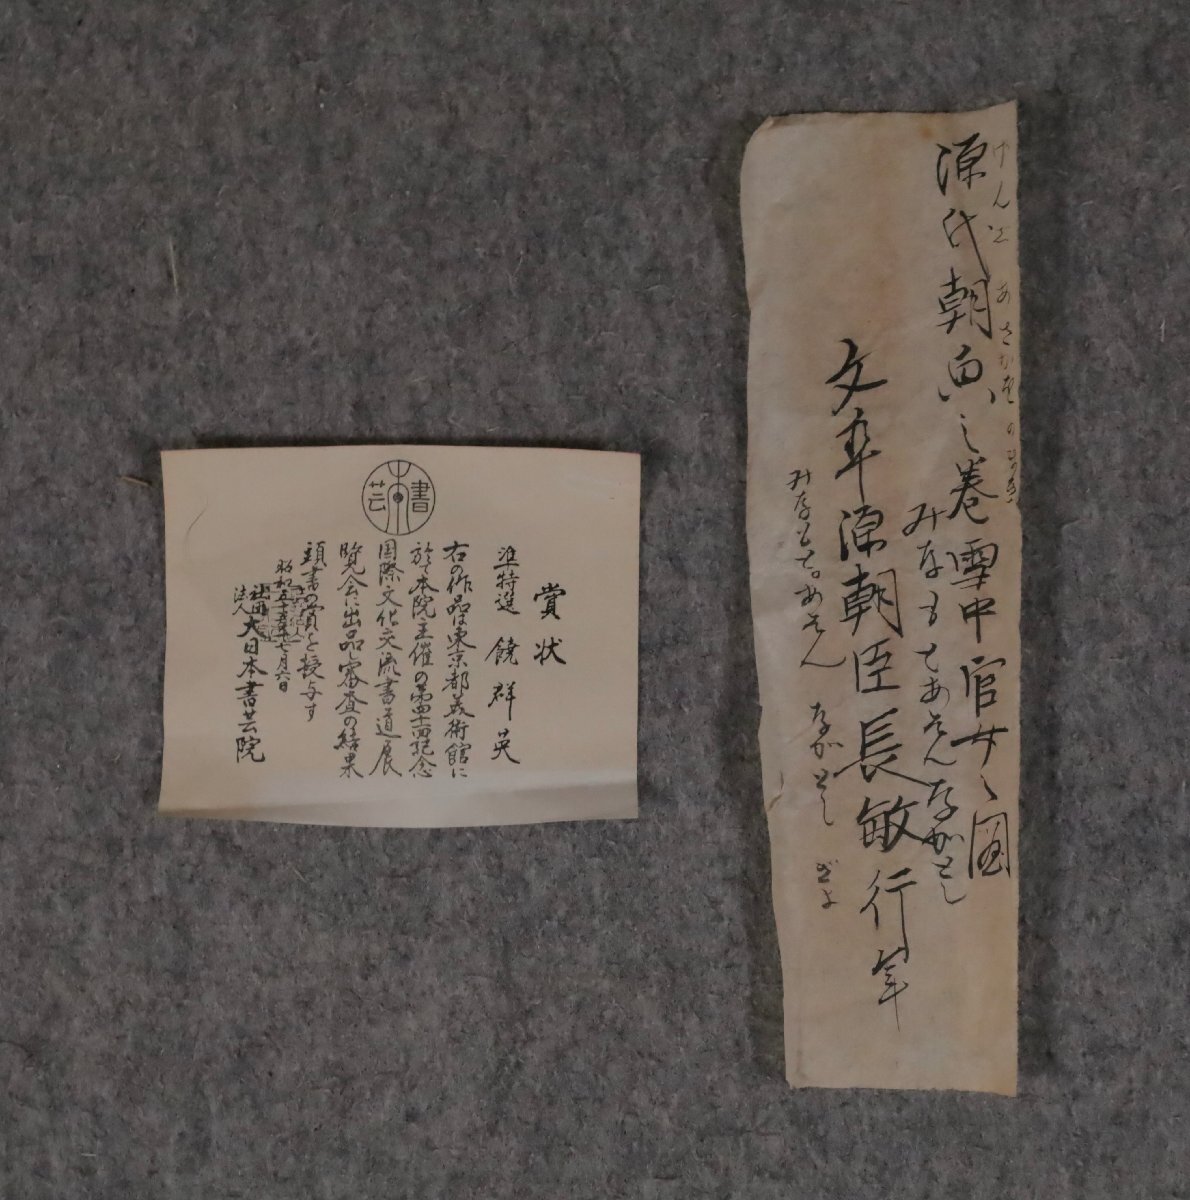 げんじ あさがほの まき
源氏朝皃之巻雪中官女之図
みなもとあそんながとし
文章源朝臣長敏行年
みなもとあそん ながとし
書
芸
賞状
準特選 饒群英
右の作品は東京都美術館に
於て本院主催の第四十回記念
国際文化交流書道展
覧会に出品し審査の結果
頭書の賞を授与す
昭和五十五年七月六日
社団
法人 大日本書芸院